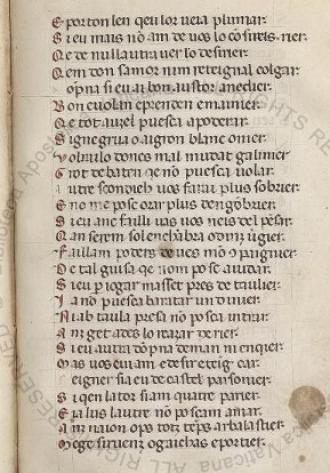 E por ton len qeu lor veia plumar.
S ieu mais no am de uos lo cosireis rier.
Q e de nulla utra uer lo desirier.
Q em don samor nim reteignal colgar.
o pna si eu ai bon austor anedier.
B on cuolin eprenden e maunier.
Q e tot auzel puesca apoderar.
S igne grua o aigron blanc o nier.
u olraulo dones mal mudat galinier
G rot de batre qe no puesca uolar.
a utre scondieh uos farai plus sobrier.
E no me posc orar plus dengobrier.
S ieu anc failli uas uos neis del pesar.
Q an serem sol en chabra odinz uigier.
F aillam poders de uos
D e tal guisa qe nom posc aiudar.
S ieu p iogar masset pres de taulier.
I a no puesca baratar un dinier.
N i ab taula presa no posca intrar.
A nz get ades lo reazar de rier.
S i eu autra dopna deman ni enquer.
M as uos cui am e desir e teig car.
S eigner sia eu de castel parsonier.
S i qen la tor siam quatre parier.
E ia lus lautre no poscam amar.
A nz maion ops totz temps arbalastier.
M ege siruenz o gaichas e portier.